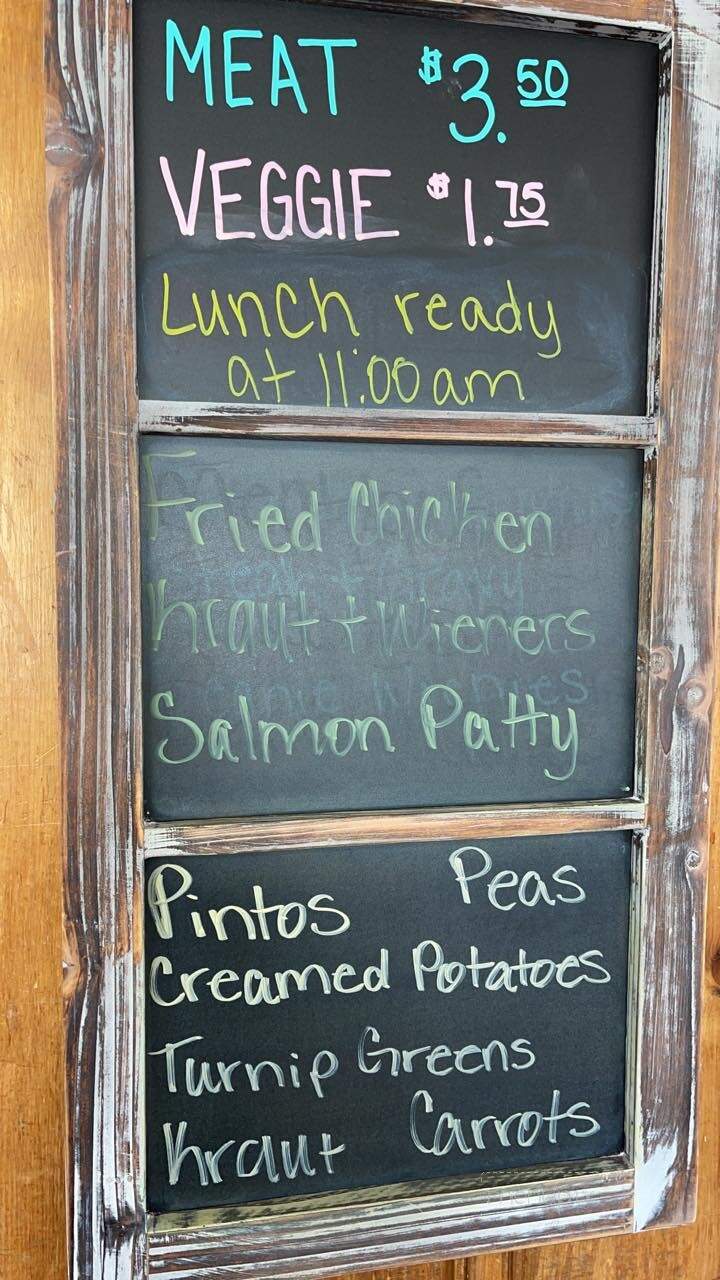 MEAT $3.50
VEGGIE $1.75
Lunch ready
at 11:00am
Fried Chicken
Kraut + Wieners
Salmon Patty
Pintos Peas
Creamed Potatoes
Turnip Greens
Kraut Carrots